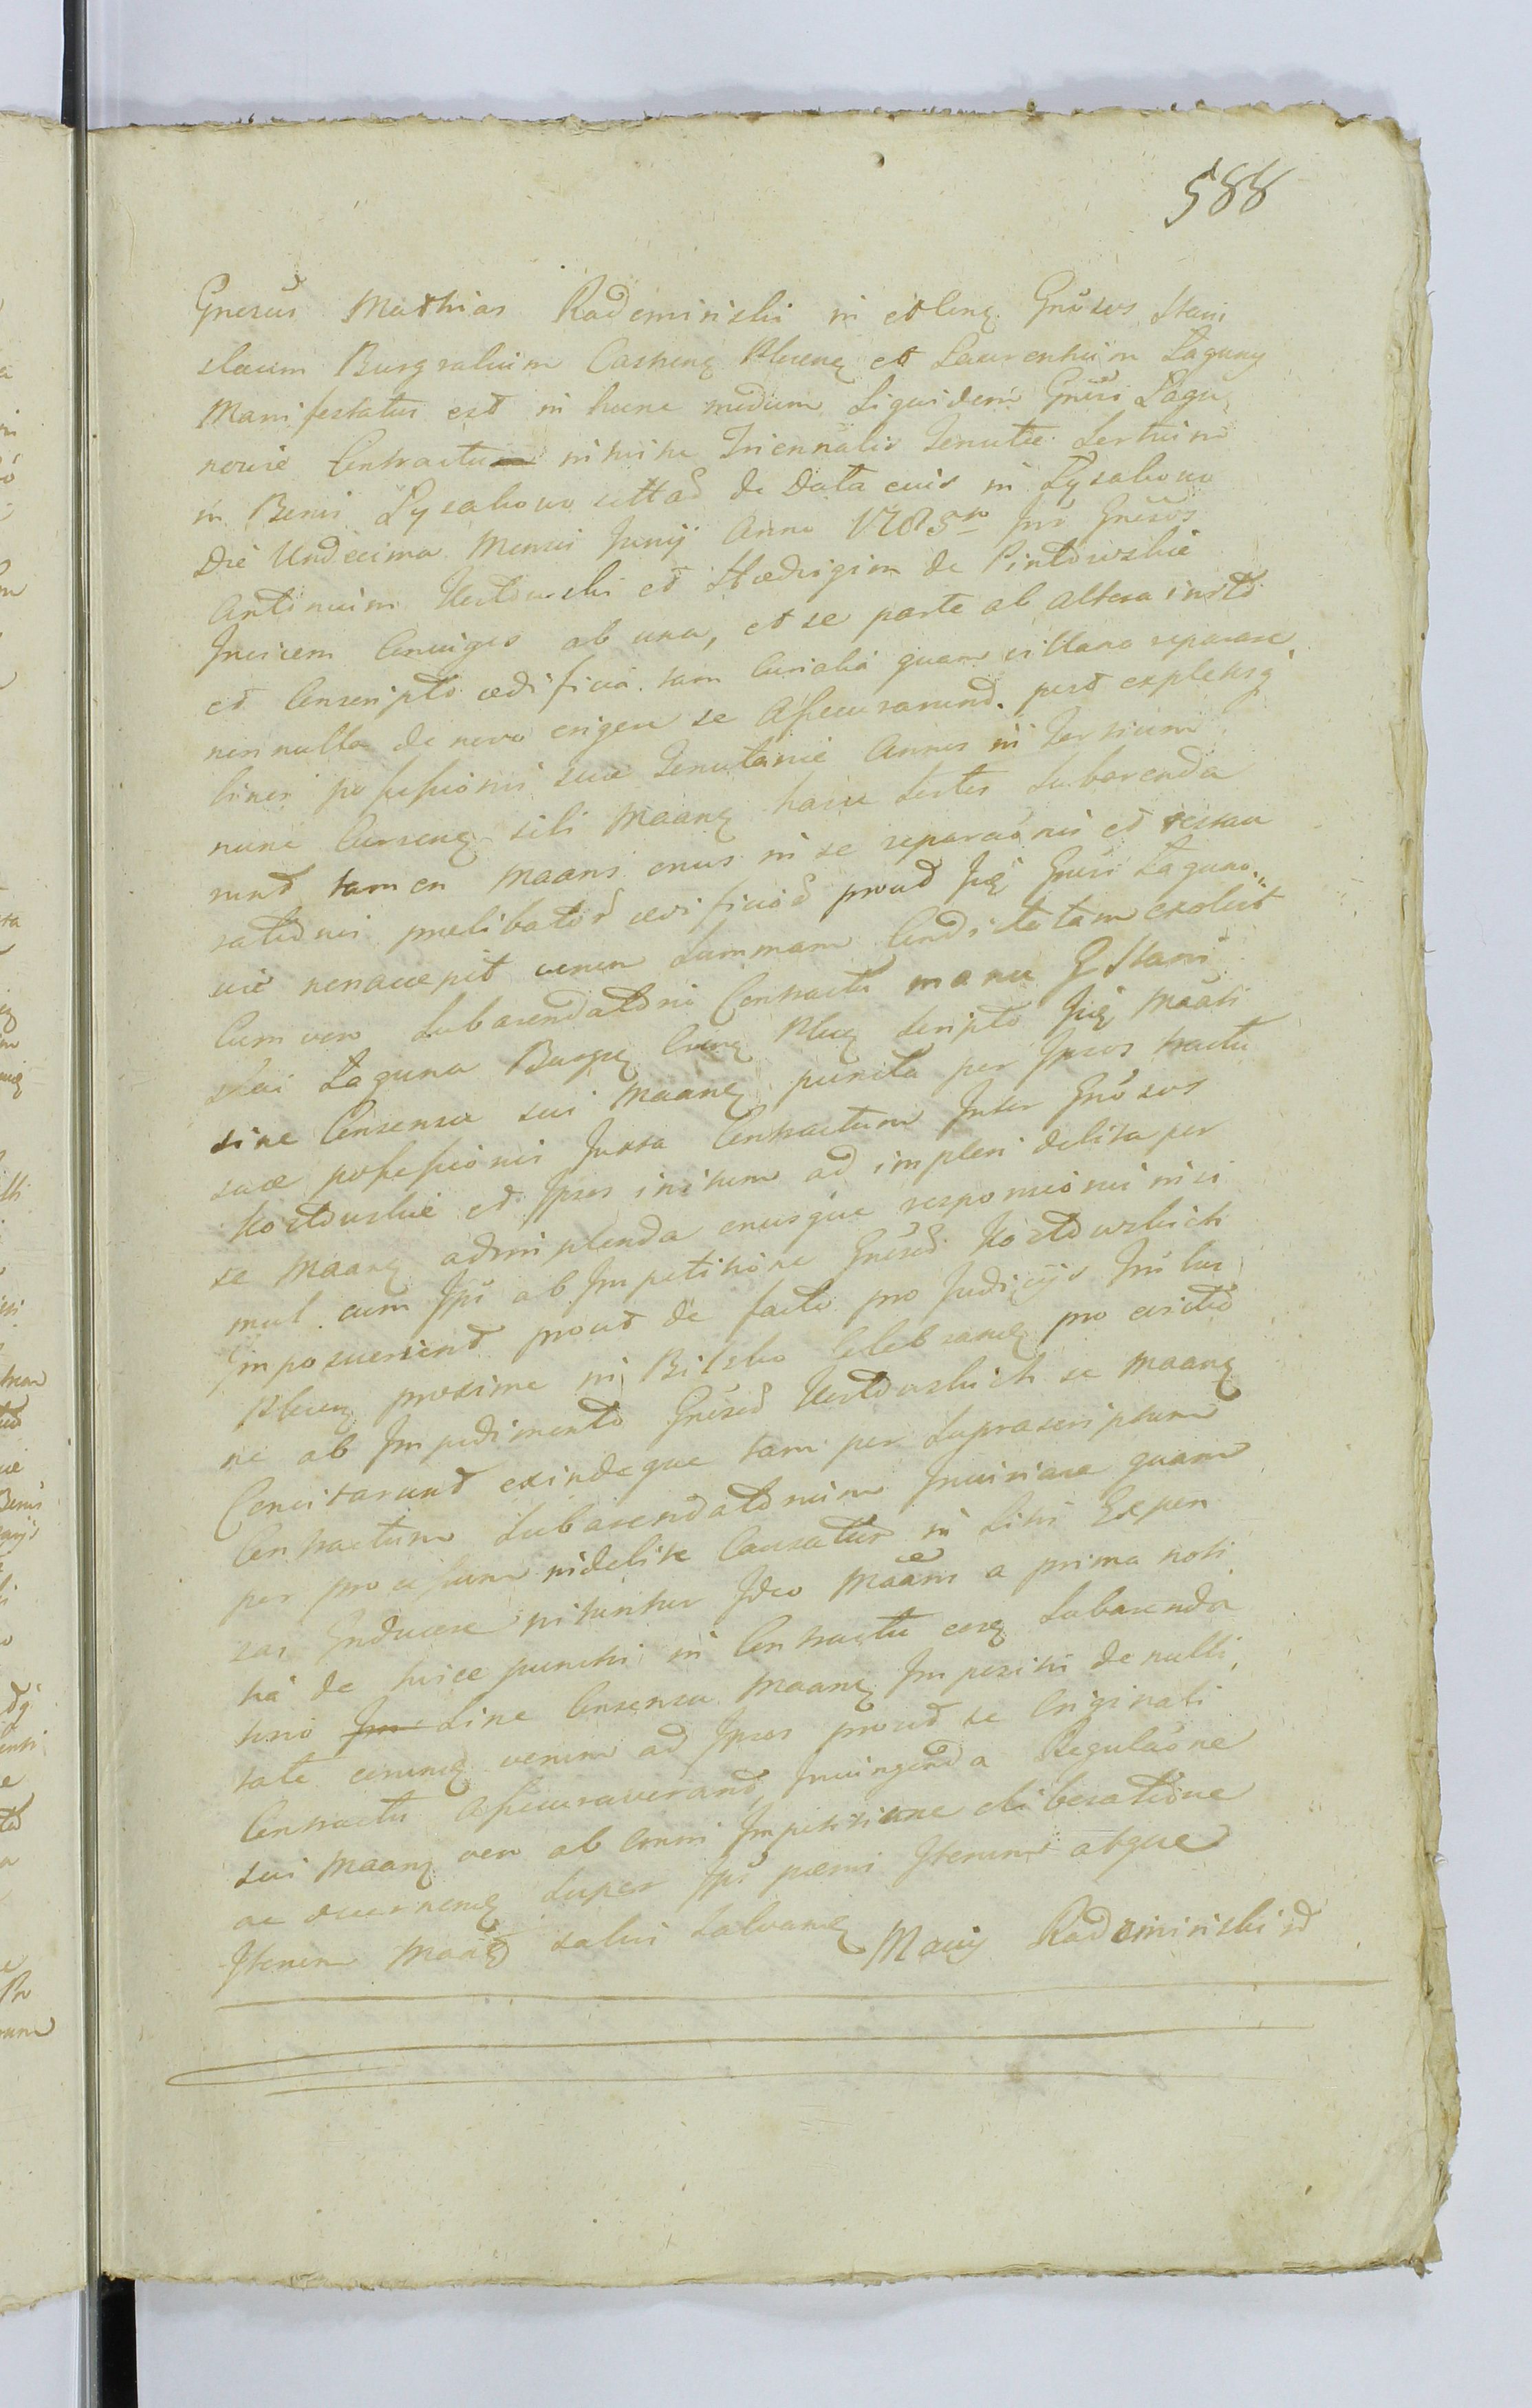 588
Gnesus Mathias Radziminski in et ctra Gnosos Stani
slaum Burgrabium Castrens Plocens et Laurentium Łaguny
Manifestatus est in hunc modum Siquidem Gnesi Łagu
nowie Contractu intuitu Triennalis Tenutae Sortium
in Bonis Łysakowo sittar de Data ejus in Łysakowo
Die Undecima Mensis Junij Anno 1785to Inr Gnesos
Antonium Kostowski et Hedvigim de
Invicem Conjuges ab una, et se parte ab altera inito
et Conscripto aedificia tam Curialia quam villana reparare
non nulla de novo erigere se Assecurarunt. post expletis
binis possessionis suae Tenutariae Annis in Tertium
nunc Currens sibi Maans hasce Sortes Subarenda
runt tamen Maans onus in se reparaonis et restau
rationis praelibator aedificior prout Gnesi Łaguno
wie non accepit verum Summam Condictatam exolvit
Cum vero Subarendatorio Contractu manu G Stani
slai Łaguna Burgr Plocs scripto Maanti
sine Consensu sui Maans puncta per Ipsos tractu
suae possessionis Juxta Contractum Inter Gnosos
Kostowskie et Ipsos initum ad impleri debita per
se Maans adimplenda onusque responsionis in si
mul cum Ipsi ab Impetitione Gnesor Kostowskich
Imposuerunt prout de facto pro Judicijs
Plocen proxime in Bielsko Celebrans pro evictio
ne ab Impedimento Gnesor Kostowskich se Maans
Concitarunt exindeque tam per Supra scriptum
Contractum Subarendatorium Injuriare quam
per processum indebite Causatum in Litis Expen
sas Inducere nituntur Ideo Maans a prima noti
tia de hisce punctis in Contractu Subarenda
torio Sine Consensu Maans Impositis de nulli
tate eorum verum ad Ipsos prout se Originali
Contractu Assecuraverant, Injungenda Regulaone
sui Maans vero ab Omni Impetitione deliberatione
ac Super Ipsi paenis Iterum atque
Iterum Maans salvis Salvans Maciej Radziminski